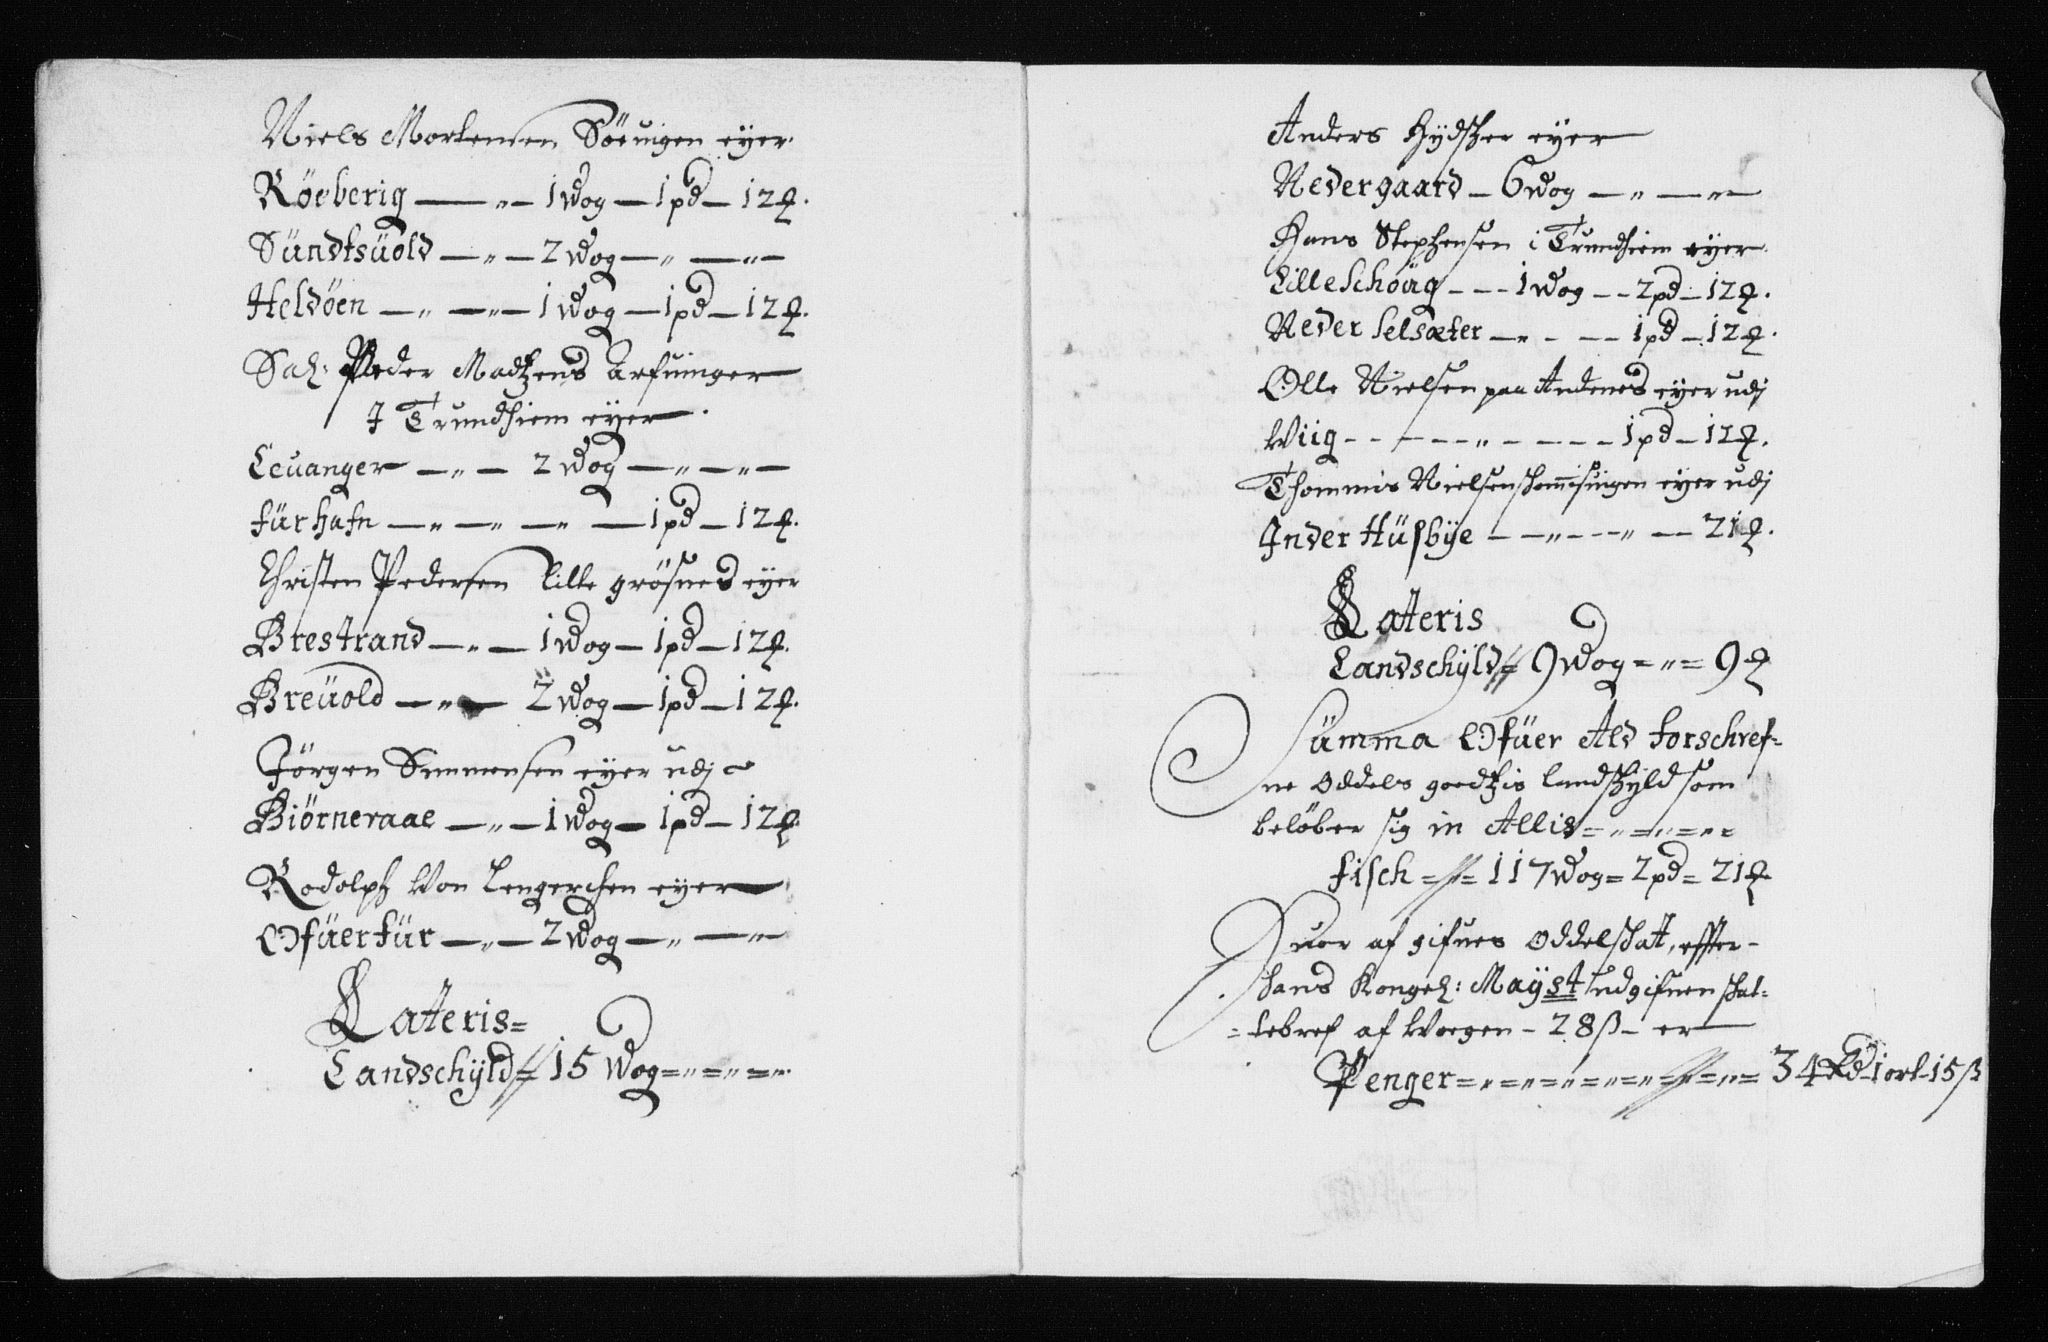 Niels Mortensen Söeuigen eyer
Röeberig — „ — 1 wog — 1 pd — 12 ℔.
Sündtsüold — „ — 2 wog — „ — „ —
Heldöen — „ — „ — 1 wog — 1 pd — 12 ℔.
Sal: Peder Madtzens Arfuinger
J Trundhiem eyer.
Leuanger — „ — 2 wog — „ — „ —
fürhafn — „ — „ — „ — 1 pd — 12 ℔.
Christen Pedersen lille grösnes eyer
Brestrand — „ — 1 wog — 1 pd — 12 ℔.
Breüold — „ — 2 wog — 1 pd — 12 ℔.
Jörgen Simmensen eyer udj
Biörneraae — „ — 1 wog — 1 pd — 12 ℔.
Rodolph Von Lengerchen eyer
Ofüerfür — „ — 2 wog — „ — „ —
Lateris =
Landschÿld = 15 Wog = „ = „ = „
Anders eyer
Nedergaard — 6 wog — „ — „ —
Hans Stephensen i Trundhiem eyer
Lilleschoüg - - - 1 wog - - 2 pd — 12 ℔.
Neder Selsæter — „ - - — 1 pd — 12 ℔.
Olle Nielsen paa Andenes eyer udj
Wiig - - - - - „ - - - - 1 pd — 12 ℔.
Thommis Nielsen eyer udj
Inder Hüsbÿe - - „ - - - „ - - 21 ℔.
Lateris
Landschÿld = 9 wog = „ = 9 ℔
Sümma Ofüer Ald forschref-
ne Oddels goedtzis landschyld som
belöber sig in Allis = „ = „ = „ =
fisch = „ = 117 wog = 2 pd = 21 ℔.
Huor af gifues Oddelschat, effter-
hans Kongel: Mayst udgifuen schat=
=tebref af Woegen - 28 ß - er
Penger = „ = „ = „ = „ = „ = „ = „ = 34 Rd 1 ort - 15 ß